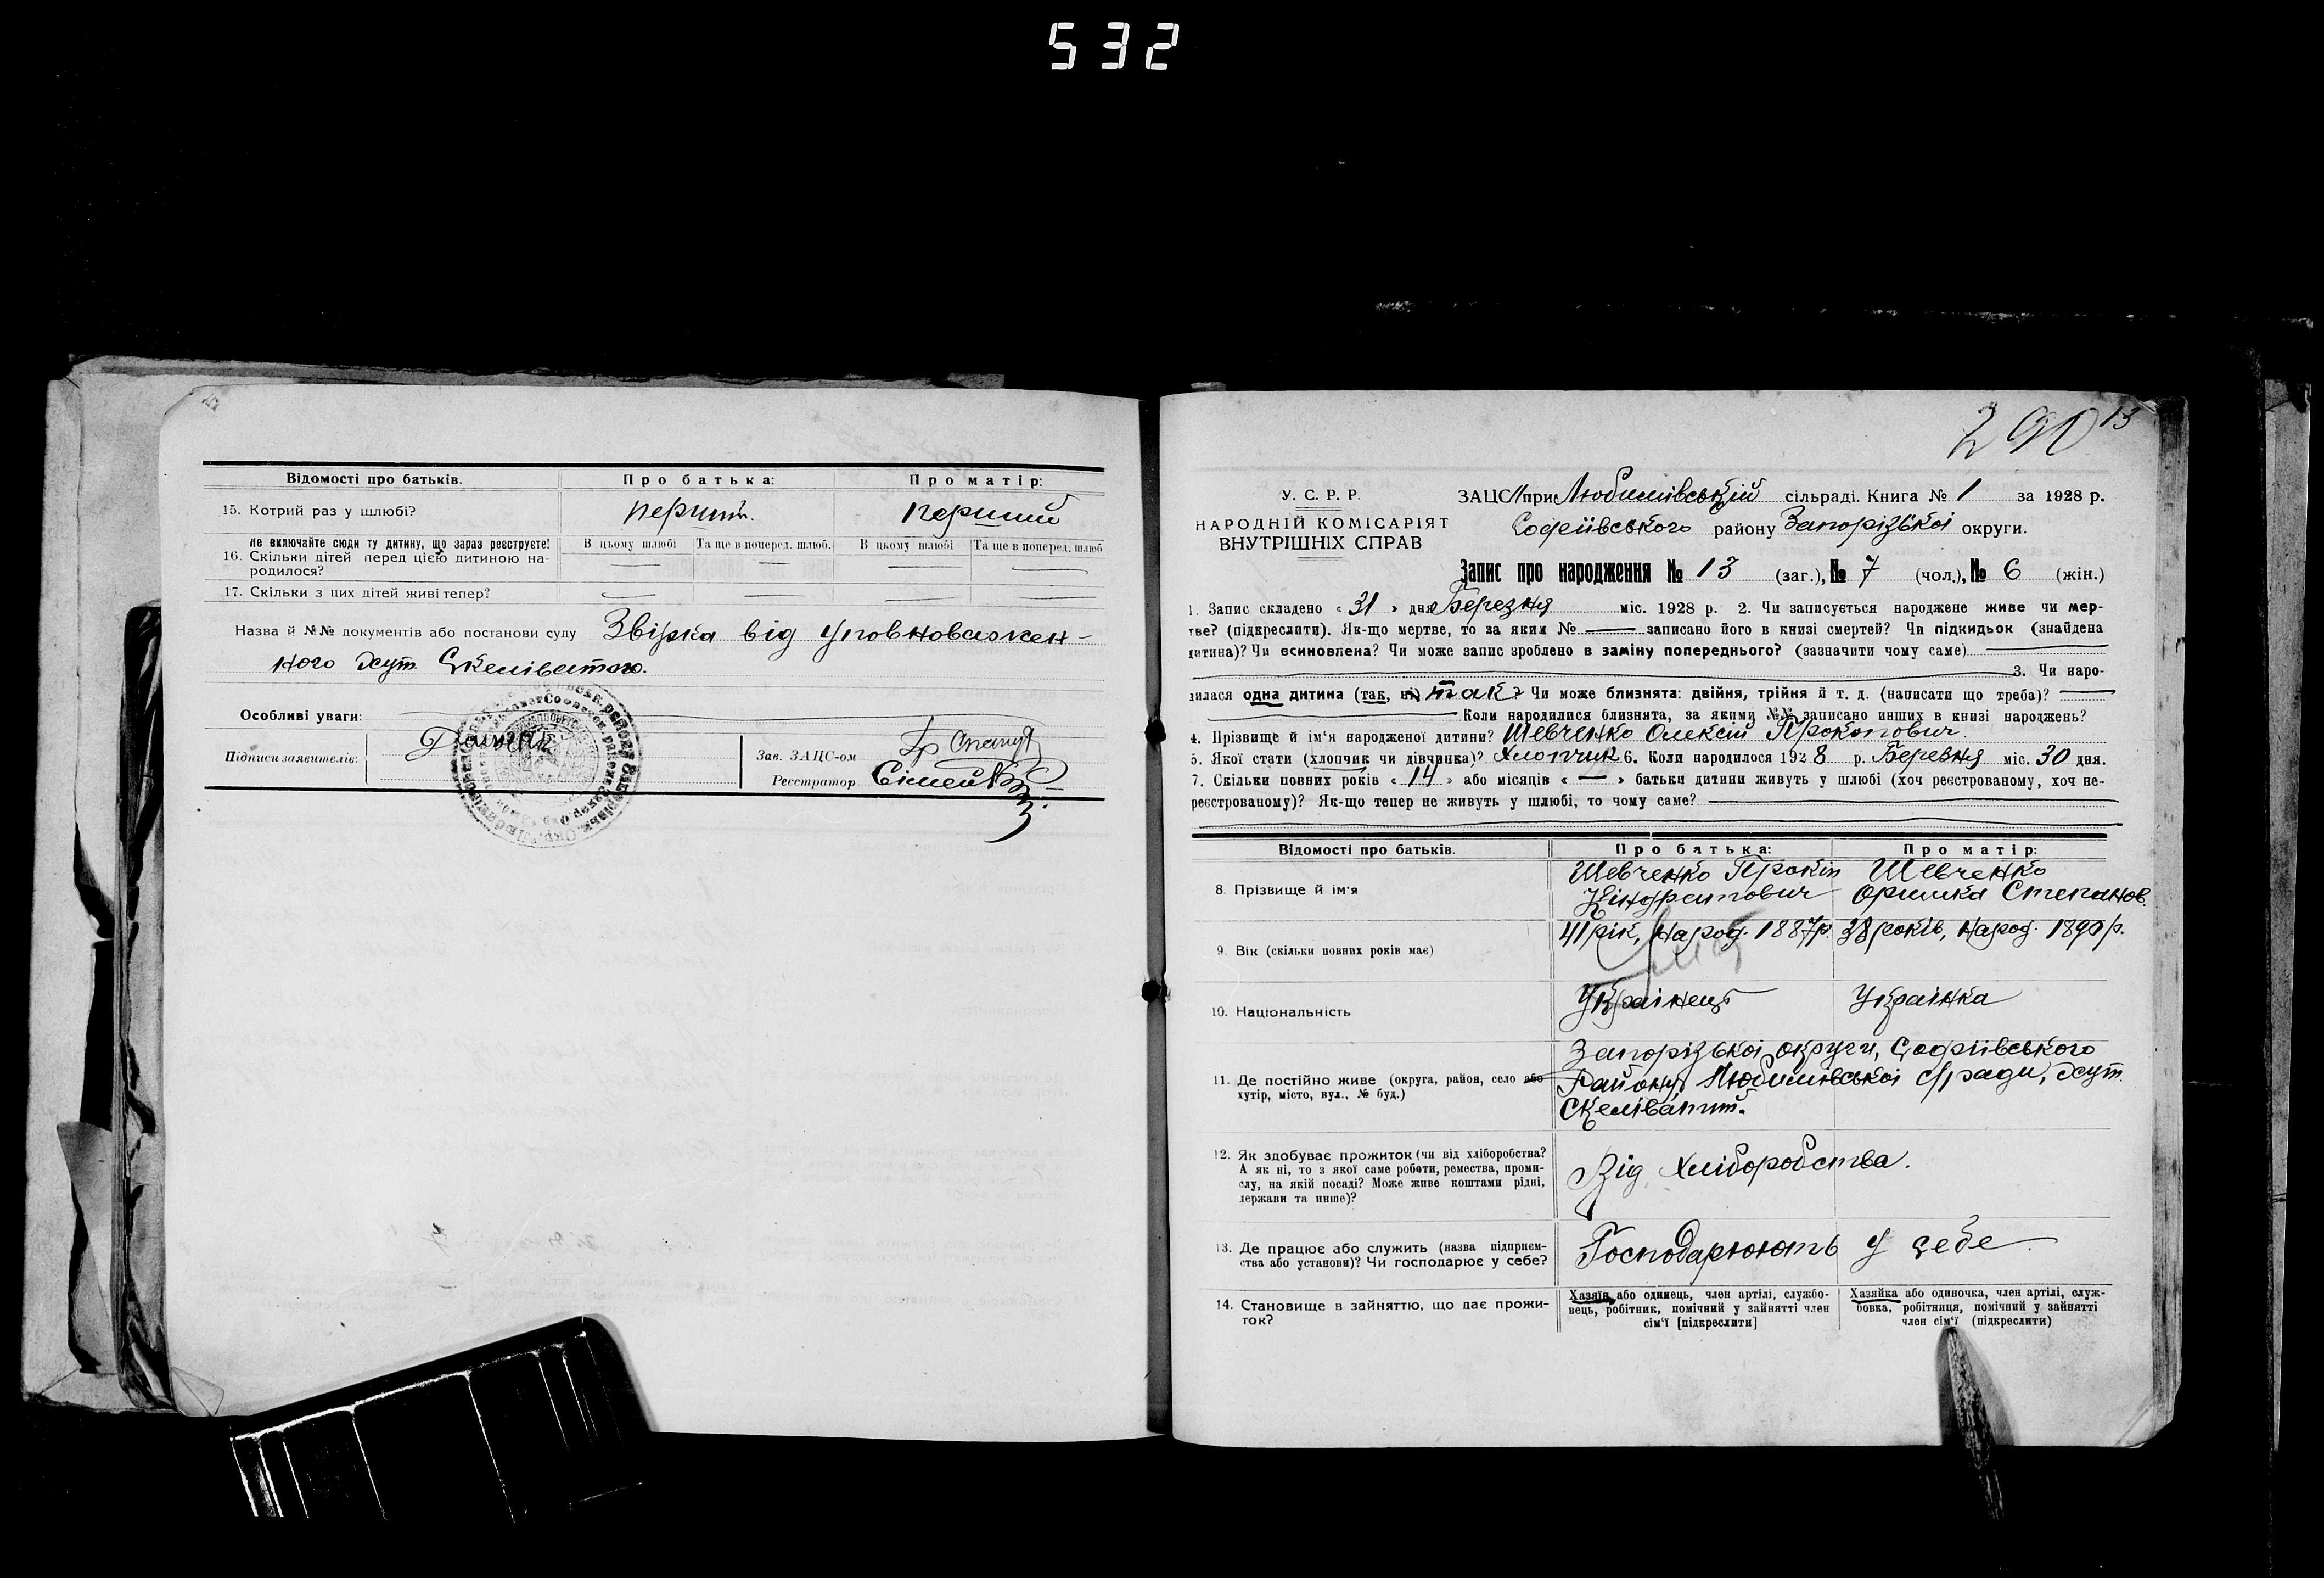 532
Відомості про батьків. Про батька: Про матір:
15. Котрий раз у шлюбі? перший. перший
Не включайте сюди ту дитину, що зараз реєструєте! В цьому шлюбі Та ще в поперед. шлюб. В цьому шлюбі Та ще в поперед. шлюб
16. Скільки дітей перед цією дитиною на- — — — —
родилося?
17. Скільки з цих дітей живі тепер? — — — —
Назва й №№ документів або постанови суду Звірка від уповноважен-
ного хут. Скеліватого.
Особливі уваги:
Підписи заявителів: Зав. ЗАЦС-ом
Реєстратор
290 13
У. С. Р. Р. ЗАЦС при Любимівській сільраді. Книга № 1 за 1928 р.
НАРОДНІЙ КОМІСАРІЯТ Софеіівського району Запорізької округи.
ВНУТРІШНІХ СПРАВ
Запис про народження № 13 (заг.), № 7 (чол.), № 6 (жін.)
1. Запис складено «31» дня Березня міс. 1928 р. 2. Чи записується народжене живе чи мер-
тве? (підкреслити). Як-що мертве, то за яким № — записано його в книзі смертей? Чи підкидьок (знайдена
дитина)? Чи всиновлена? Чи може запис зроблено в заміну попереднього? (зазначити чому саме) —
— 3. Чи наро-
дилася одна дитина (так, ні) так? Чи може близнята: двійня, трійня й т. д. (написати що треба)? —
— Коли народилися близнята, за якими №№ записано инших в книзі народжень?
4. Прізвище й ім'я народженої дитини? Шевченко Олексій Прокопович.
5. Якої стати (хлопчик чи дівчинка)? Хлопчик 6. Коли народилося 1928 р. Березня міс. 30 дня.
7. Скільки повних років «14» або місяців «—» батьки дитини живуть у шлюбі (хоч реєстрованому, хоч не-
реєстрованому)? Як-що тепер не живуть у шлюбі, то чому саме? —
Відомості про батьків. Про батька: Про матір:
8. Прізвище й ім'я Шевченко Прокіп Шевченко
Оришка Степанов.
9. Вік (скільки повних років має) 41 рік, народ. 1887 р. 38 років, народ. 1890 р.
10. Національність Українець Українка
Запорізької округи, Софіівського
11. Де постійно живе (округа, район, село або Району, Любимівської с/ради, хут.
хутір, місто, вул., № буд.) Скеліватий.
12. Як здобуває прожиток (чи від хліборобства? Від Хліборобства.
А як ні, то з якої саме роботи, ремества, проми-
слу, на якій посаді? Може живе коштами рідні,
держави та инше)?
13. Де працює або служить (назва підприєм- Господарюють у себе
ства або установи)? Чи господарює у себе?
14. Становище в зайняттю, що дає прожи- Хазяїн або одинець, член артілі, службо- Хазяйка або одиночка, член артілі, служ-
ток? вець, робітник, помічний у зайнятті член бовка, робітниця, помічний у зайнятті
сім'ї [підкреслити] член сім'ї (підкреслити)